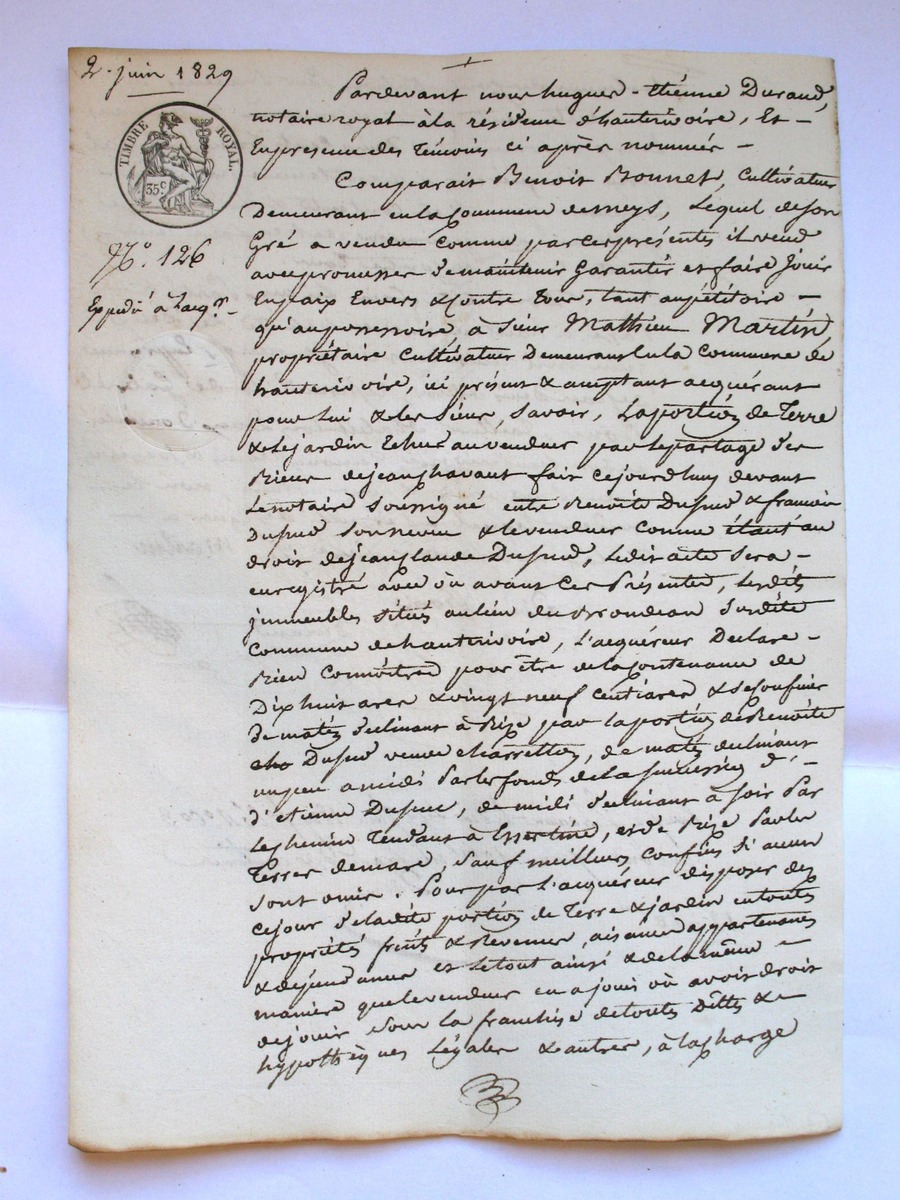 2. juin 1829
TIMBRE ROYAL.
35 c.
N.o 126
Expédié à l'acq.r
Pardevant nous hugues-Etiénne Durand,
notaire royal à la résidence d'hauterivoire, Et
En presence des Témoins ci après nommés
Comparait Benoit Bonnet, Cultivateur
Demeurant en la Commune demeys, Lequel de son
Gré a vendu comme par ces présentes il vend
avec promesses de maintenir Garantir et faire Jouir
En paix Envers & Contre Tous, tant au pétitoire
qu'au possessoire, à Sieur Mathieu Martin,
propriétaire cultivateur Demeurant en la commune de
hauterivoire, ici présent & acceptant acquérant
pour Lui & les Siens, Savoir, La portion de Terre
& le jardin échus au vendeur par le partage des
Biens de jean chavant fait cejourd'huy devant
Le notaire Soussigné entre Benoite Dupué & francois
Dupué Son neveu & le vendeur comme étant au
droit de jean claude Dupué, Ledit acte Sera
enregistré avec où avant Ces Présentes, Lesdits
jmmeubles Situés au lieu du Brondeau Susdite
Commune de hauterivoire, L'acquéreur Déclare
Bien Connoitre pour être de la Contenance de
Dix huit ares & vingt neuf centiares & se Confiner
De matin déclinant à Bize par la portion de Benoite
Dupué veuve charretton, de matin declinant
un peu a midi Par le fonds de la Succession d'
d'etienne Dupué, de midi déclinant à Soir Par
Le chemin Tendant à Essertine, et de Bize Par les
Terres de mare, Sauf meilleurs confins Si aucun
Sont omis. Pour par L'acquéreur disposer dès
ce jour de ladite portion de Terre & jardin en toutes
propriétés fruits & Revenus, aisances appartenances
& dépendances et Le tout ainsi & de la même
manière que le vendeur en a joui où avoit droit
de jouir, Sous la franchise de toutes Dettes &
hypothèques Légales & autres, à la charge